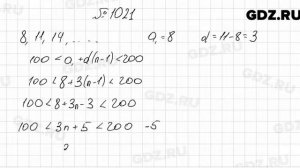 GDZ.RU
№1021
8, 11, 14, .... a₁=8 d=11-8=3
100 < a₁+d(n-1) < 200
100 < 8+3(n-1) < 200
100 < 8+3n-3 < 200
100 < 3n+5 < 200 -5
GDZ.RU